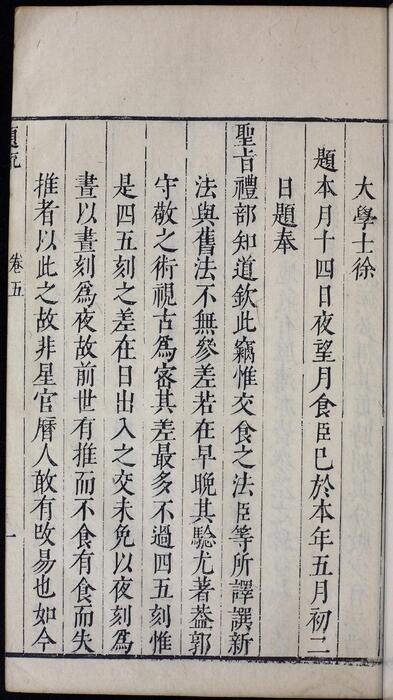 大學士徐
題本月十四日夜望月食臣已於本年五月初二
日題奉
聖旨禮部知道欽此竊惟交食之法臣等所譯譔新
法與舊法不無參差若在早晚其驗尤著葢郭
守敬之術視古爲密其差最多不過四五刻惟
是四五刻之差在日出入之交未免以夜刻爲
晝以晝刻爲夜故前世有推而不食有食而失
推者以此之故非星官曆人敢有改易也如今
卷五